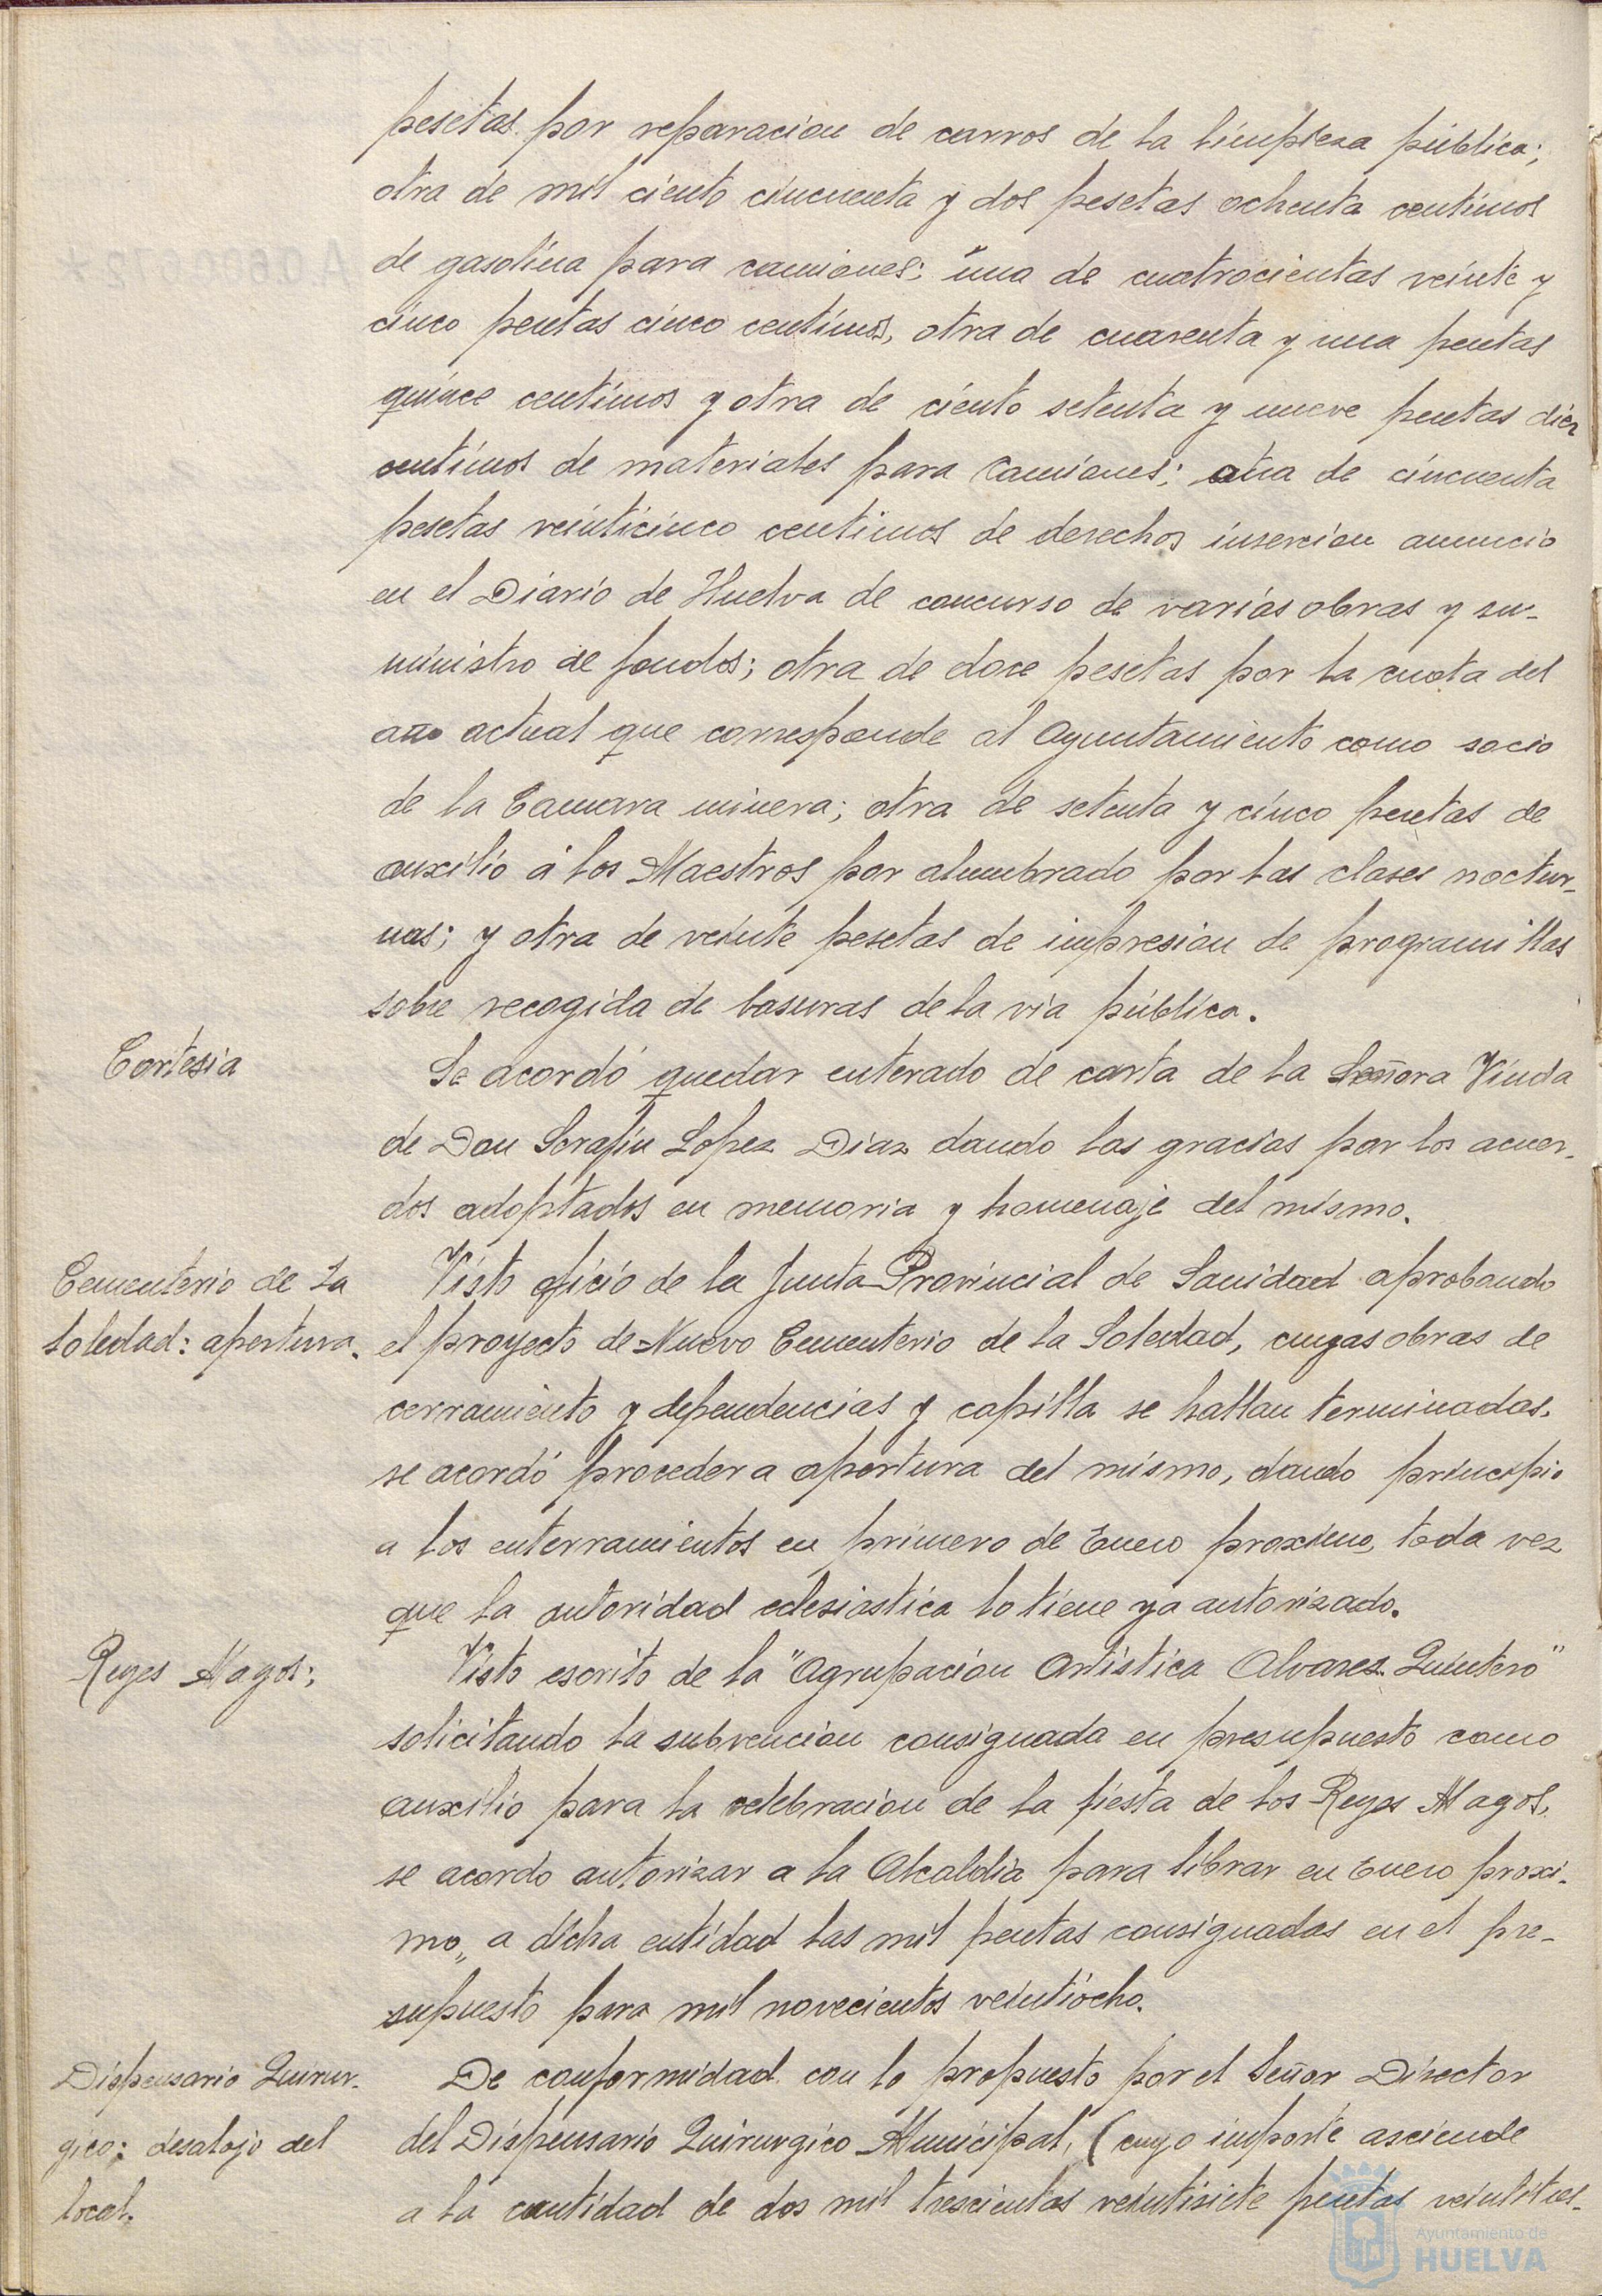 pesetas por reparacion de carros de la limpieza pública;
otra de mil ciento cincuenta y dos pesetas ochenta centimos
de gasolina para camiones; una de cuatrocientas veinte y
cinco pesetas cinco centimos, otra de cuarenta y una pesetas
quince centimos y otra de ciento setenta y nueve pesetas diez
centimos de materiales para Camiones; otra de cincuenta
pesetas veinticinco centimos de derechos insercion anuncio
en el Diario de Huelva de concurso de varias obras y su-
ministro de fondos; otra de doce pesetas por la cuota del
año actual que corresponde al Ayuntamiento como socio
de la Camara minera; otra de setenta y cinco pesetas de
auxilio á los Maestros por alumbrado por las clases noctur-
nas; y otra de veinte pesetas de impresion de programillas
sobre recogida de basuras de la via pública.
Cortesia
Se acordó quedar enterado de carta de la Señora Viuda
de Don Serafin Lopez Diaz dando las gracias por los acuer-
dos adoptados en memoria y homenaje del mismo.
Cementerio de La
Soledad: apertura.
Visto oficio de la Junta Provincial de Sanidad aprobando
el proyecto de Nuevo Cementerio de la Soledad, cuyas obras de
cerramiento y dependencias y capilla se hallan terminadas,
se acordó proceder a apertura del mismo, dando principio
a los enterramientos en primero de Enero proximo, toda vez
que la autoridad eclesiastica lo tiene ya autorizado.
Reyes Magos:
Visto escrito de la "Agrupacion Artistica Alvarez Quintero"
solicitando la subvencion consignada en presupuesto como
auxilio para la celebracion de la fiesta de los Reyes Magos,
se acordo autorizar a la Alcaldia para librar en Enero proxi-
mo,, a dicha entidad las mil pesetas consignadas en el pre-
supuesto para mil novecientos veintiocho.
Dispensario Quirur-
gico: desalojo del
local.
De conformidad con lo propuesto por el Señor Director
del Dispensario Quirurgico Municipal, (cuyo importe asciende
a la cantidad de dos mil trescientas veintisiete pesetas veintitres-
Ayuntamiento de
HUELVA